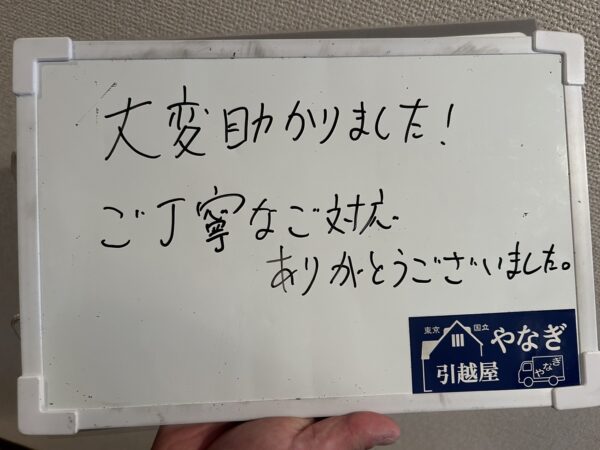 大変助かりました!
ご丁寧なご対応
ありがとうございました。
東京 国立
やなぎ
引越屋
やなぎ